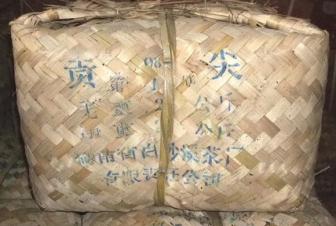 贡 96- 尖
第 1 次
毛重 2 公斤
重 公斤
湖南省白沙溪茶厂
有限责任公司